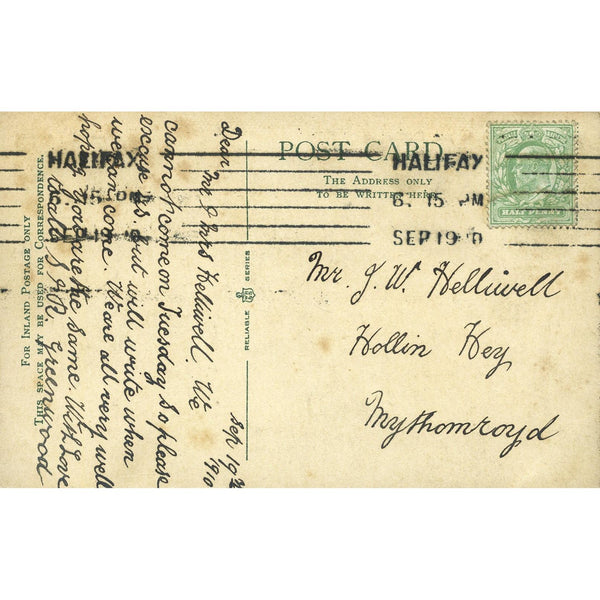 POST CARD
THE ADDRESS ONLY
TO BE WRITTEN HERE
HALIFAX
6. 15 PM
SEP 19 10
HALIFAX
6. 15 PM
SEP 19 10
HALF PENNY
FOR INLAND POSTAGE ONLY
THIS SPACE MAY BE USED FOR CORRESPONDENCE.
RELIABLE SERIES
Sep 19th
1910
Dear Mr & Mrs Helliwell We
cannot come on Tuesday so please
excuse us but will write when
we can come. We are all very well
hoping you are the same. With Love
to all Greenwood
Mr. J. W. Helliwell
Hollin Hey
Mythomroyd